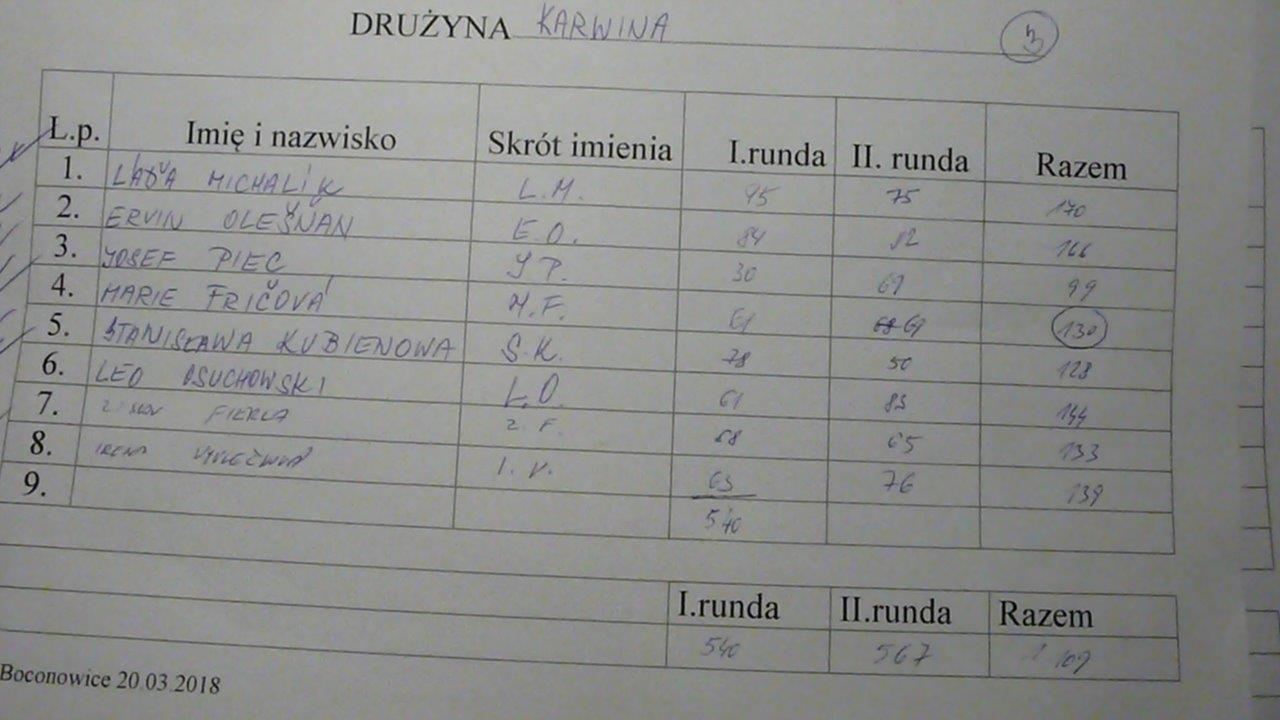 DRUŻYNA KARWINA 3
L.p. Imię i nazwisko Skrót imienia I.runda II. runda Razem
1. LAĎA MICHALÍK L.M. 95 75 170
2. ERVIN OLEŠNAN E.O. 84 82 166
3. JOSEF PIEC J P. 30 69 99
4. MARIE FRIČOVÁ M.F. 61 69 130
5. STANISŁAWA KUBIENOWA S.K. 78 50 128
6. LEO OSUCHOWSKI L.O. 61 83 144
7. FIERLA Z. F. 68 65 133
8. IRENA I. V. 63 76 139
9. 540
I.runda II.runda Razem
540 567
Boconowice 20.03.2018